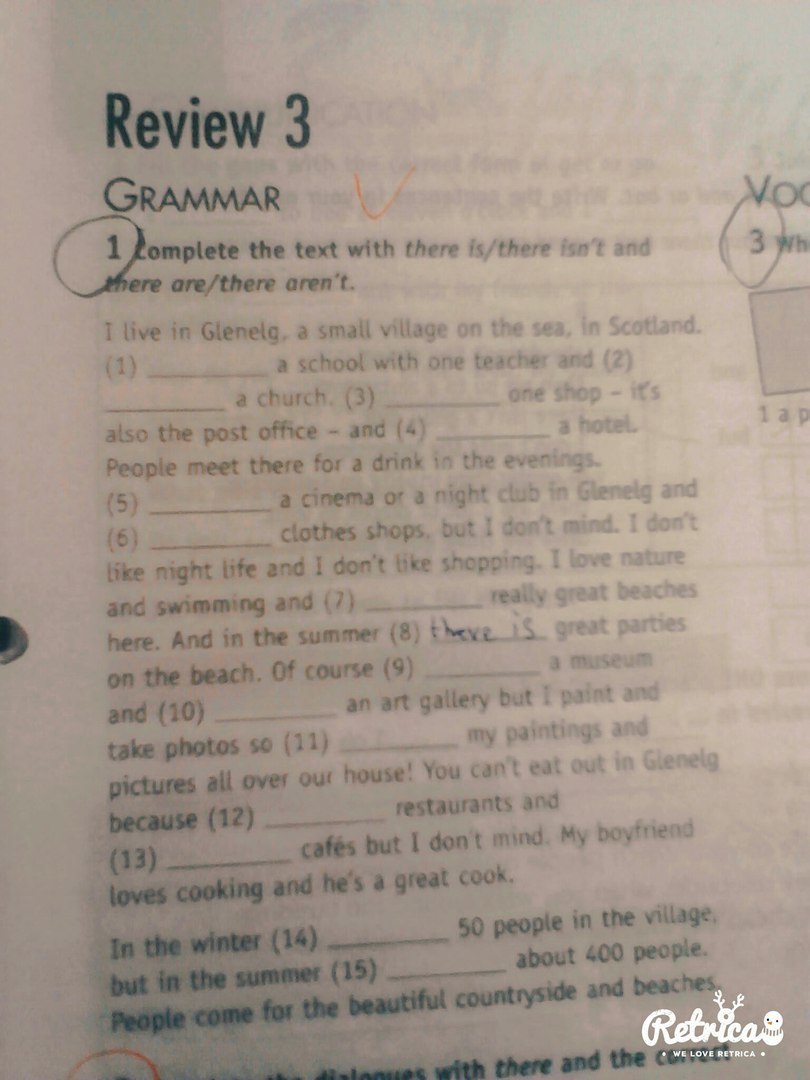 Review 3
GRAMMAR
1 Complete the text with there is/there isn't and
there are/there aren't.
I live in Glenelg, a small village on the sea, in Scotland.
(1) __________ a school with one teacher and (2)
__________ a church. (3) __________ one shop – it's
also the post office – and (4) __________ a hotel.
People meet there for a drink in the evenings.
(5) __________ a cinema or a night club in Glenelg and
(6) __________ clothes shops, but I don't mind. I don't
like night life and I don't like shopping. I love nature
and swimming and (7) __________ really great beaches
here. And in the summer (8) there is great parties
on the beach. Of course (9) __________ a museum
and (10) __________ an art gallery but I paint and
take photos so (11) __________ my paintings and
pictures all over our house! You can't eat out in Glenelg
because (12) __________ restaurants and
(13) __________ cafés but I don't mind. My boyfriend
loves cooking and he's a great cook.
In the winter (14) __________ 50 people in the village,
but in the summer (15) __________ about 400 people.
People come for the beautiful countryside and beaches.
dialogues with there and the correct
VOC
3 Wh
1 a p
Retrica
• WE LOVE RETRICA •